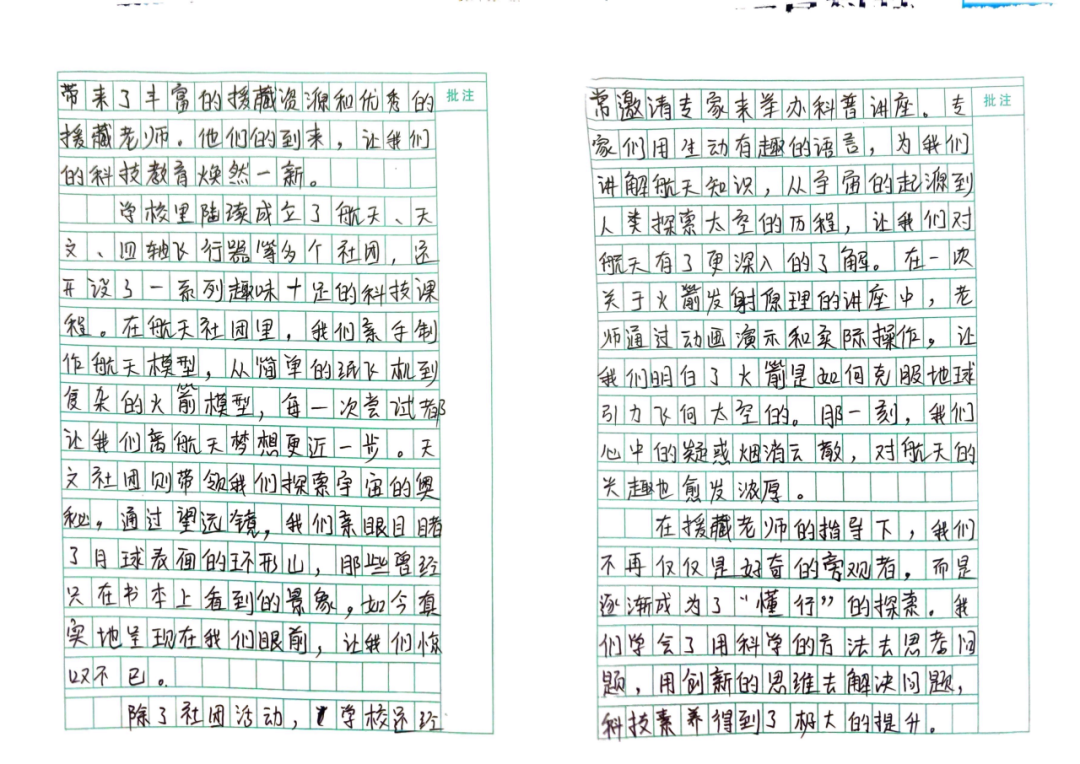 带来了丰富的援藏资源和优秀的
援藏老师。他们的到来，让我们
的科技教育焕然一新。
学校里陆续成立了航天、天
文、四轴飞行器等多个社团，还
开设了一系列趣味十足的科技课
程。在航天社团里，我们亲手制
作航天模型，从简单的纸飞机到
复杂的火箭模型，每一次尝试都
让我们离航天梦想更近一步。天
文社团则带领我们探索宇宙的奥
秘。通过望远镜，我们亲眼目睹
了月球表面的环形山，那些曾经
只在书本上看到的景象，如今真
实地呈现在我们眼前，让我们惊
叹不已。
除了社团活动，学校还经
批注
常邀请专家来举办科普讲座。专
家们用生动有趣的语言，为我们
讲解航天知识，从宇宙的起源到
人类探索太空的历程，让我们对
航天有了更深入的了解。在一次
关于火箭发射原理的讲座中，老
师通过动画演示和实际操作，让
我们明白了火箭是如何克服地球
引力飞向太空的。那一刻，我们
心中的疑惑烟消云散，对航天的
兴趣也愈发浓厚。
在援藏老师的指导下，我们
不再仅仅是好奇的旁观者，而是
逐渐成为了“懂行”的探索。我
们学会了用科学的方法去思考问
题，用创新的思维去解决问题，
科技素养得到了极大的提升。
批注